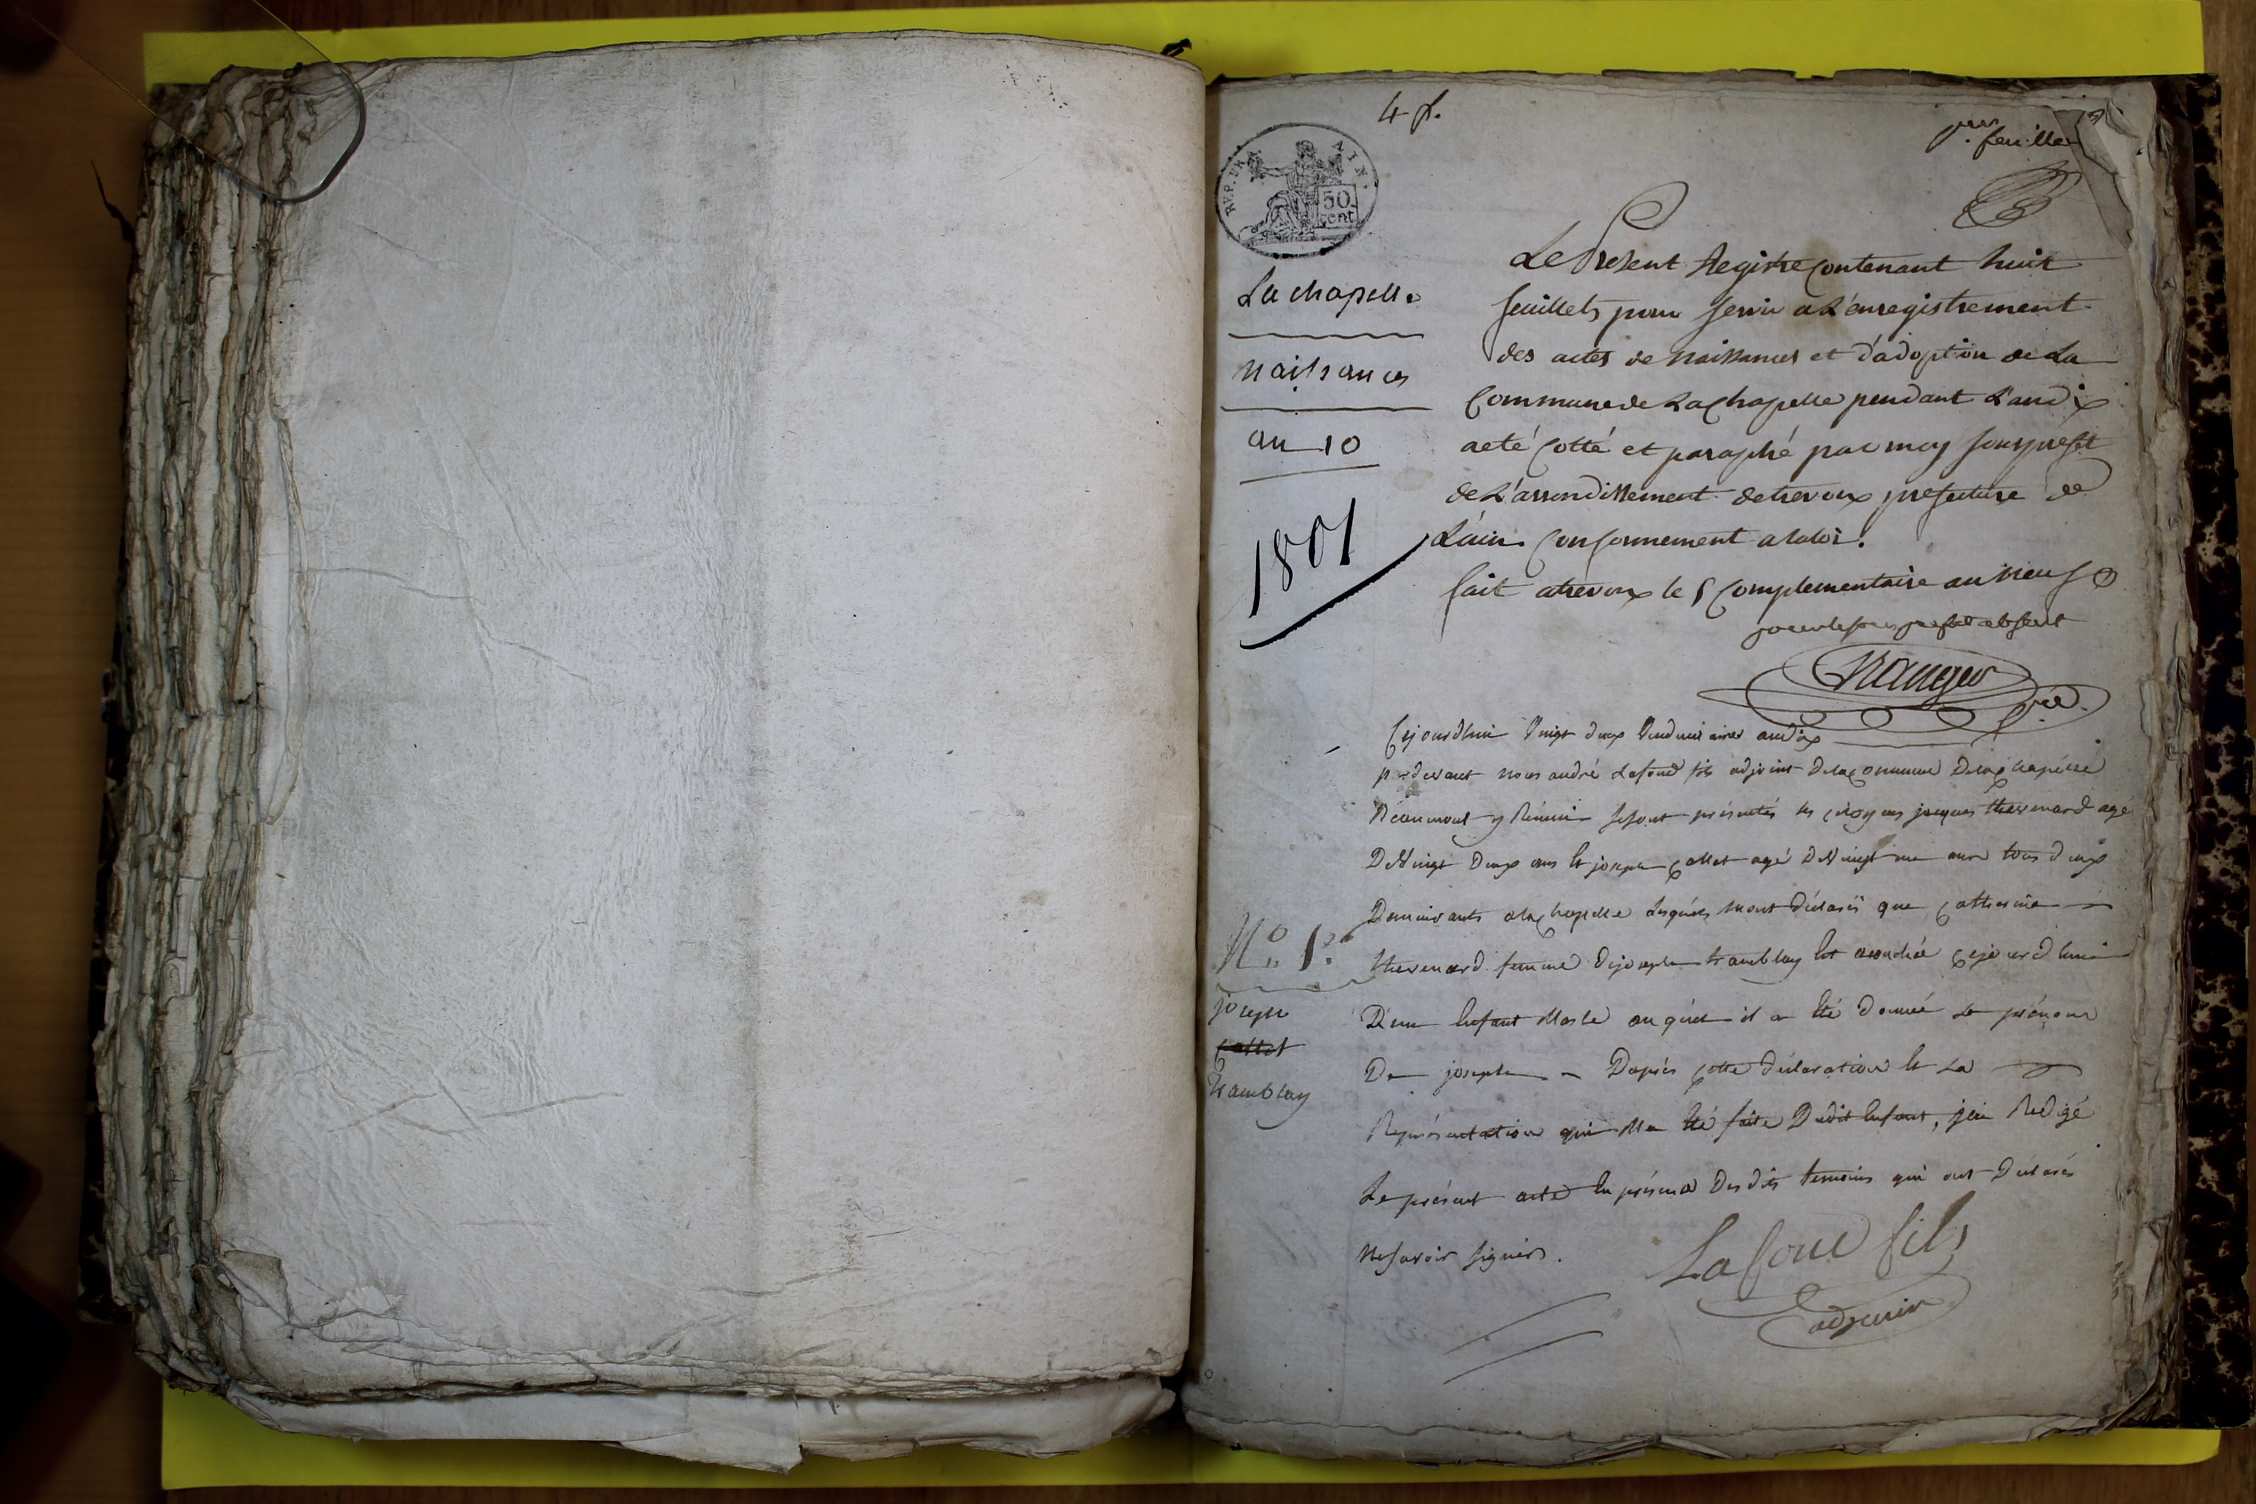 4 f.
1er feuillet
REP. FRA. AIN.
50 cent
Le Présent Registre Contenant huit
feuillets pour servir a L'enregistrement
des actes de Naissances et d'adoption de La
Commune de La Chapelle pendant L'an dix
a eté Cotté et paraphé par moy sous préfet
de L'arrondissement de trevoux prefecture de
L'ain. Conformement a la loi.
fait a trevoux le 5 Complementaire an neuf
pour le sous prefet absent
La chapelle
Naissances
an 10
1801
Cejourdhui Vingt deux Vendemiaires an dix
par devant nous andré Lafond fils adjoint de la Commune de la Chapelle
sesont présentés les citoyens jacques thevenard agé
De Vingt Deux ans Et joseph Collet agé De Vingt un ans tous deux
Demeurants a la Chapelle Lesquels mont Déclarés que Catherine
thevenard femme de joseph tramblay Est acouchée Cejourdhui
D'un Enfant Masle auquel il a Eté Donné Le prénom
De joseph Daprès Cette Déclaration Et La
Représentation qui Ma Eté faite Dudit Enfant, jai Redigé
Le présent acte En présence Desdits temoins qui ont Déclarés
Ne savoir signer.
N° 1er
joseph
Collet
tramblay
Lafond fils
adjoint